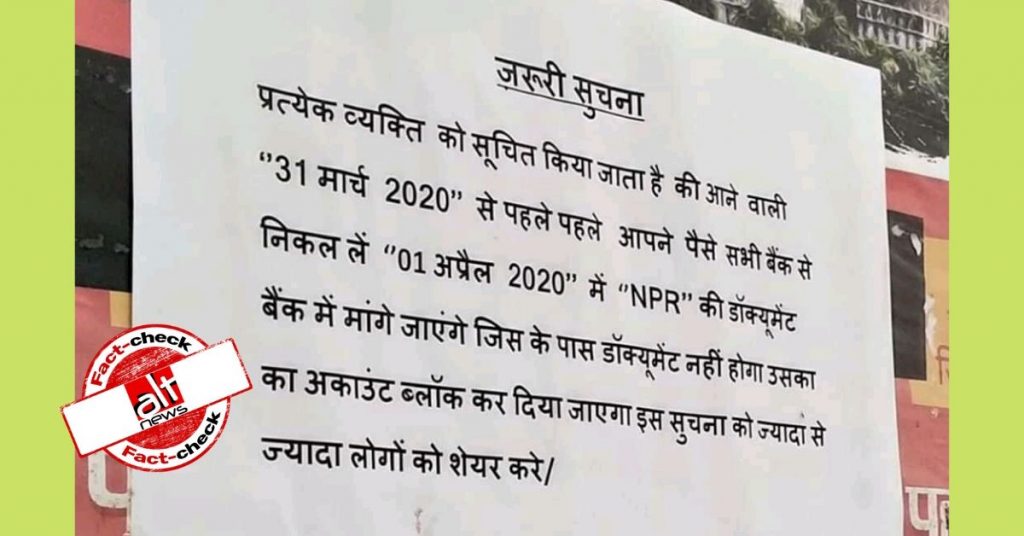 ज़रूरी सुचना
प्रत्येक व्यक्ति को सूचित किया जाता है की आने वाली
"31 मार्च 2020" से पहले पहले आपने पैसे सभी बैंक से
निकल लें "01 अप्रैल 2020" में "NPR" की डॉक्यूमेंट
बैंक में मांगे जाएंगे जिस के पास डॉक्यूमेंट नहीं होगा उसका
का अकाउंट ब्लॉक कर दिया जाएगा इस सुचना को ज्यादा से
ज्यादा लोगों को शेयर करे/
Fact-check
alt
news
Fact-check